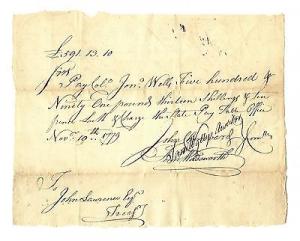 £591.13.10
Sir
Pay Colo. Jona. Wells Five hundred &
Ninety One pounds thirteen Shillings & ten
pence L. M. & Charge the State Pay Table Office
Novr. 19th. 1779
Wadsworth
To
John Lawrence Esqr
Treasr